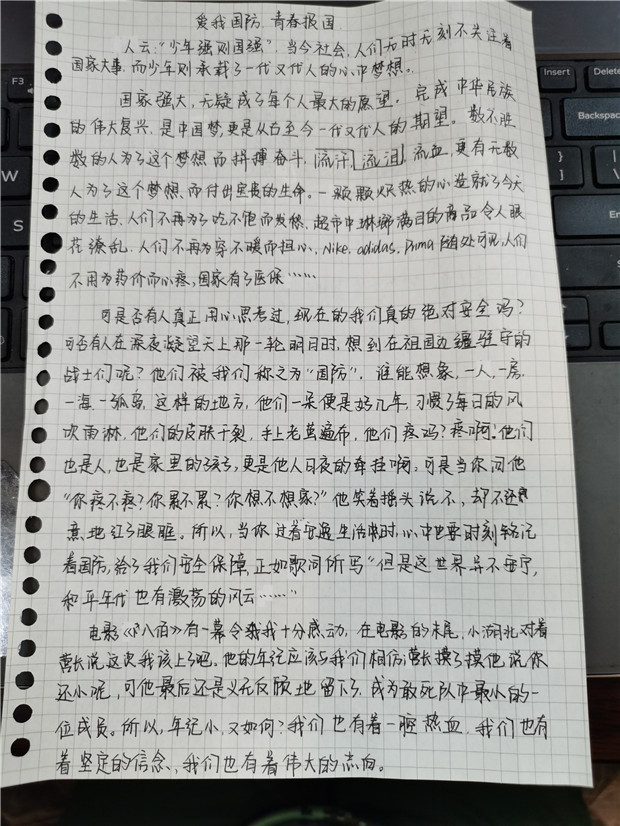 爱我国防,青春报国
人云:"少年强则国强",当今社会,人们无时无刻不关注着
国家大事,而少年则承载了一代又代人的心中梦想。
国家强大,无疑成了每个人最大的愿望。完成中华民族
的伟大复兴,是中国梦,更是从古至今一代又代人的期望。数不胜
数的人为了这个梦想而拼搏奋斗,流汗,流泪,流血,更有无数
人为了这个梦想,而付出宝贵的生命。一颗颗炽热的心造就了今天
的生活,人们不再为了吃不饱而发愁,超市中琳琅满目的商品令人眼
花缭乱,人们不再为穿不暖而担心,Nike. adidas. Puma 随处可见,人们
不用为药价而心疼,国家有了医保……
可是否有人真正用心思考过,现在的我们真的绝对安全吗?
可否有人在深夜凝望天上那一轮明月时,想到在祖国边疆驻守的
战士们呢?他们被我们称之为"国防"。谁能想象,一人,一房,
一海,一孤岛,这样的地方,他们一呆便是好几年,习惯了每日的风
吹雨淋,他们的皮肤干裂,手上老茧遍布,他们疼吗?疼啊!他们
也是人,也是家里的孩子,更是他人日夜的牵挂啊,可是当你问他
"你疼不疼?你累不累?你想不想家?"他笑着摇头说不,却不经
意地红了眼眶。所以,当你过着安逸生活时,心中也要时刻铭记
着国防,给了我们安全保障,正如歌词所写"但是这世界并不安宁,
和平年代也有激荡的风云……"
电影《八佰》有一幕令我十分感动,在电影的末尾,小湖北对着
营长说这次我该上了吧。他的年纪应该与我们相仿,营长摸了摸他说你
还小呢,可他最后还是义无反顾地留下了,成为敢死队中最小的一
位成员。所以,年纪小,又如何?我们也有着一腔热血,我们也有
着坚定的信念,我们也有着伟大的志向。
F3
Insert
Delete
Backspace
W
S